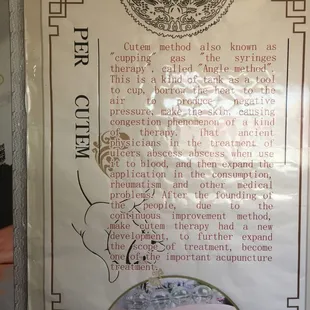 PER CUTEM
Cutem method also known as
"cupping gas "the syringes
therapy", called "Angle method".
This is a kind of tank as a tool
to cup, borrow the heat to the
air produce negative
pressure, make the skin, causing
congestion phenomenon of a kind
of therapy. That ancient
physicians in the treatment of
ulcers abscess abscess when use
it to blood, and then expand the
application in the consumption,
rheumatism and other medical
problems. After the founding of
the people, due to the
continuous improvement method,
make cutem therapy had a new
development, to further expand
the scope of treatment, become
one of the important acupuncture
treatment.